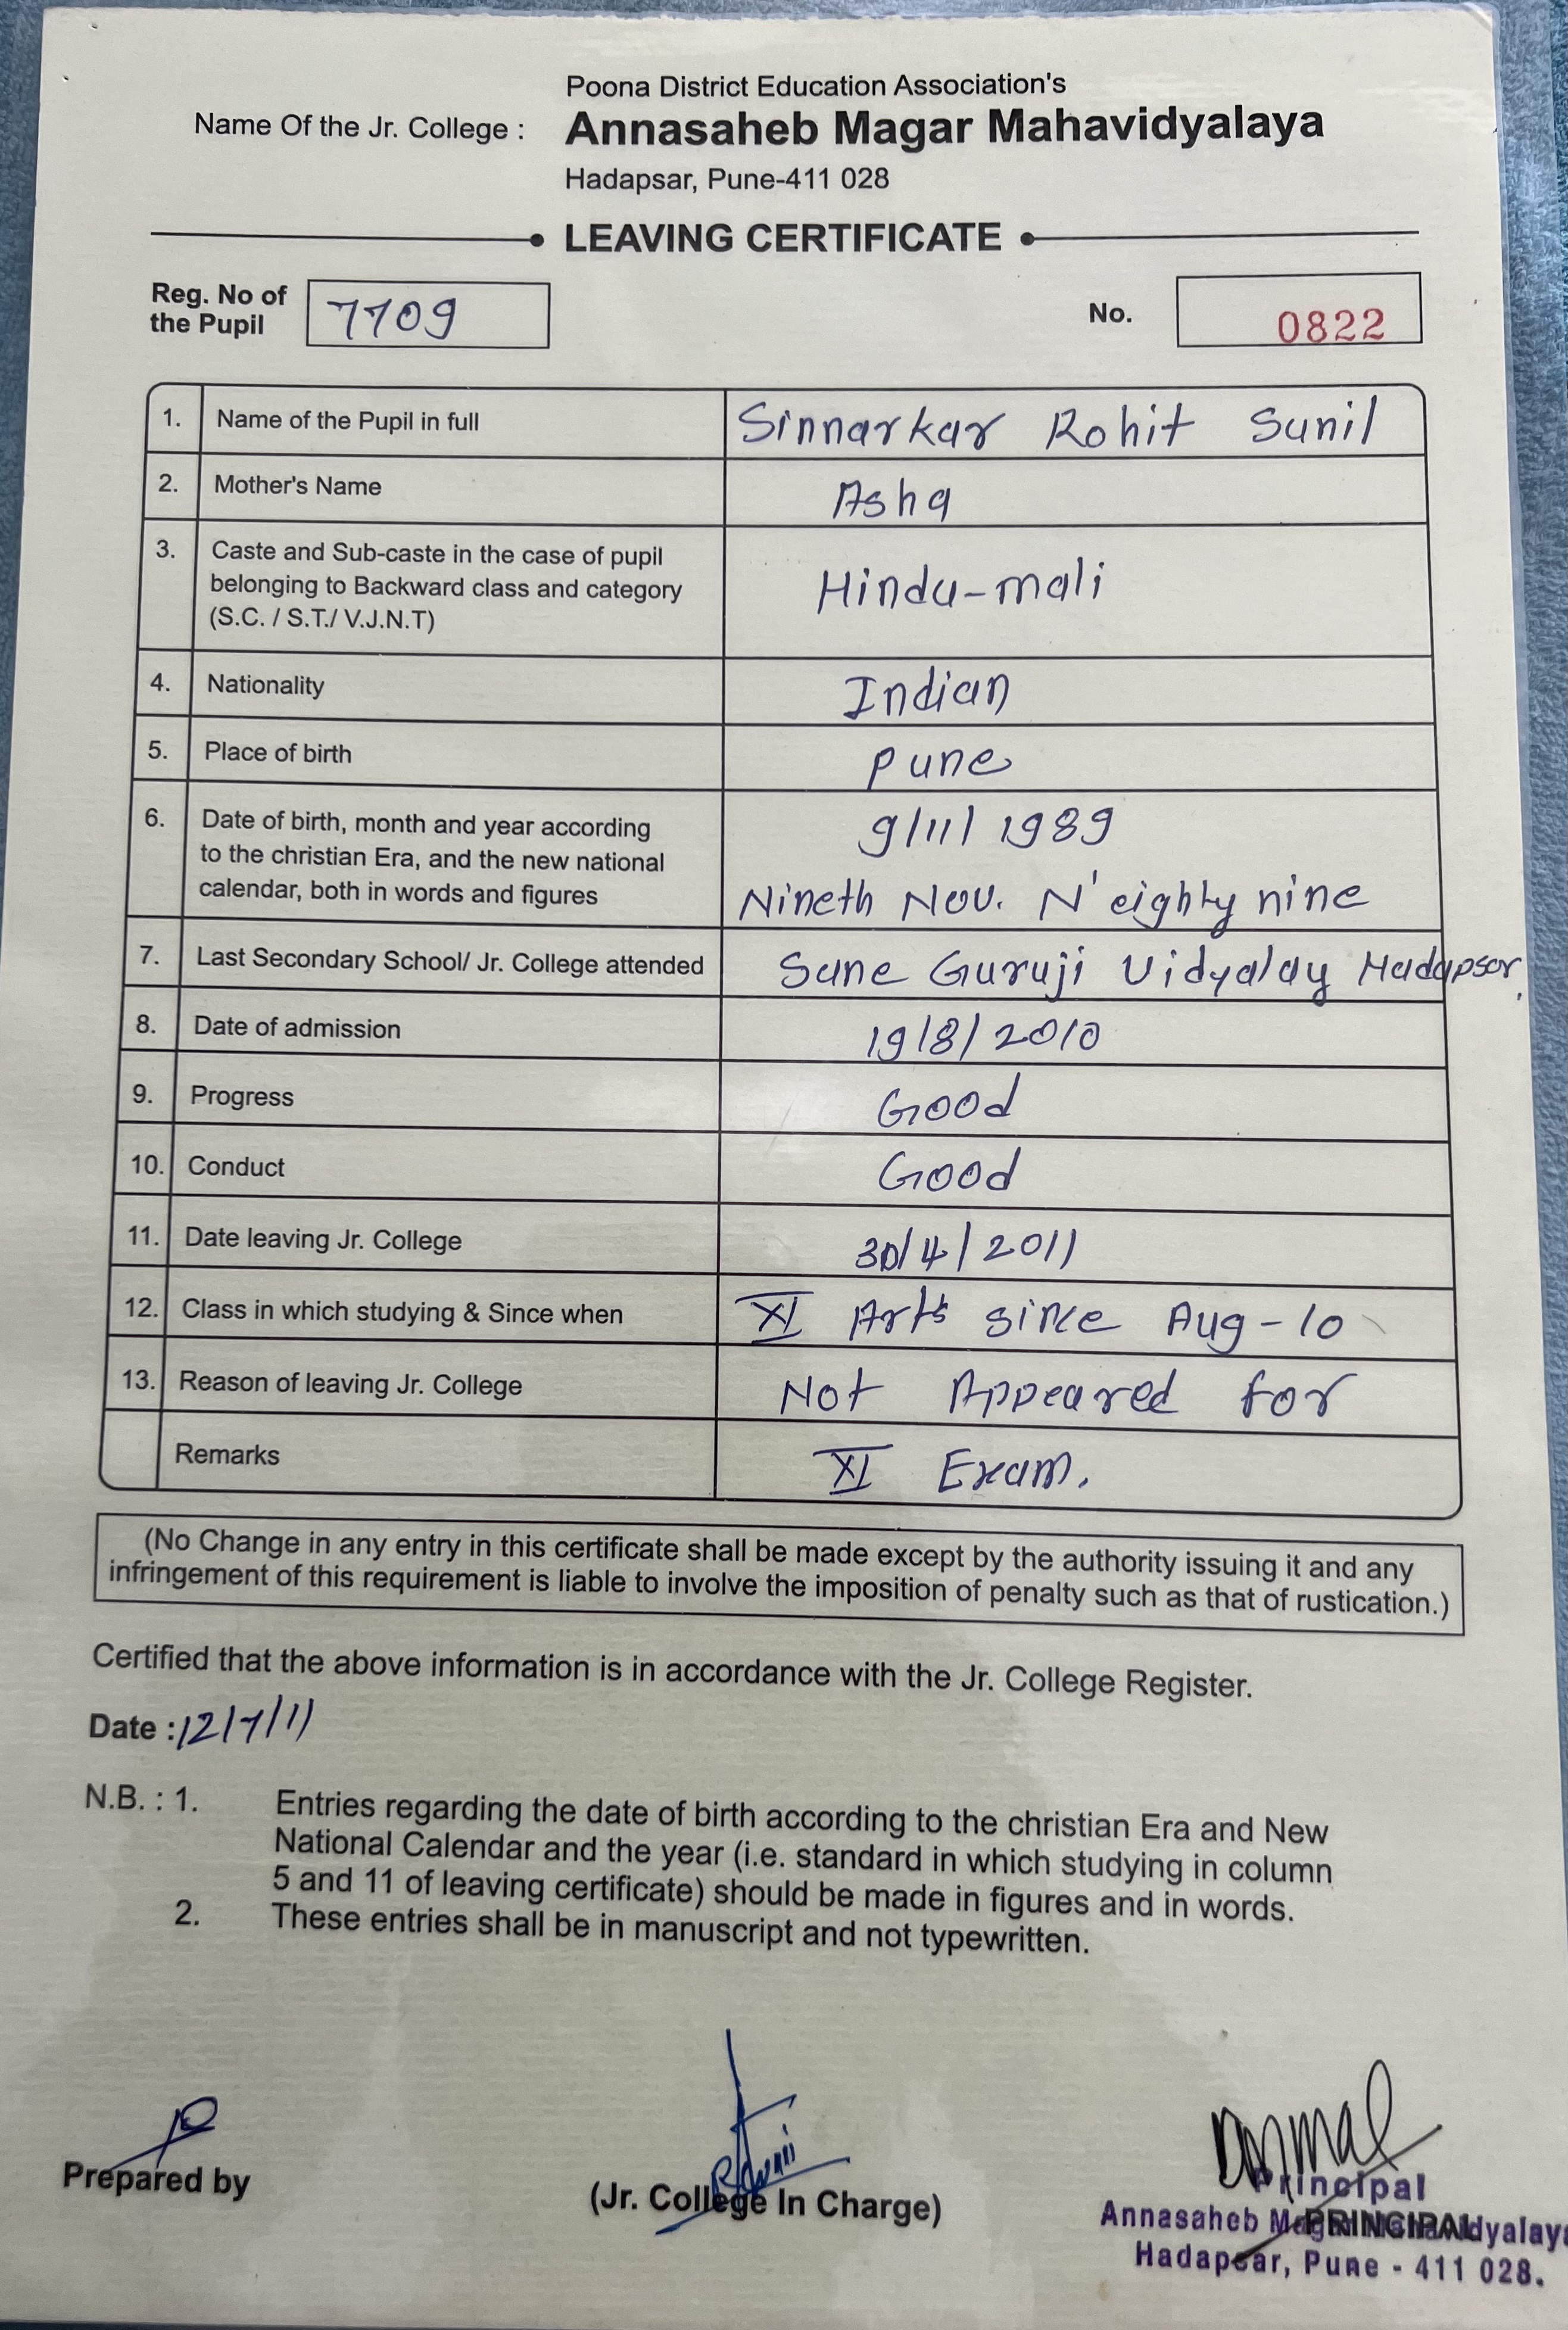 Poona District Education Association's
Name Of the Jr. College : Annasaheb Magar Mahavidyalaya
Hadapsar, Pune-411 028
LEAVING CERTIFICATE
Reg. No of the Pupil 7709 No. 0822
1. Name of the Pupil in full Sinnarkar Rohit Sunil
2. Mother's Name Asha
3. Caste and Sub-caste in the case of pupil
belonging to Backward class and category Hindu-mali
(S.C. / S.T./ V.J.N.T)
4. Nationality Indian
5. Place of birth Pune
6. Date of birth, month and year according 9/11/1989
to the christian Era, and the new national
calendar, both in words and figures Nineth Nov. N'eighty nine
7. Last Secondary School/ Jr. College attended Sane Guruji Vidyalay Hadapsar,
8. Date of admission 19/8/2010
9. Progress Good
10. Conduct Good
11. Date leaving Jr. College 30/4/2011
12. Class in which studying & Since when XI Arts since Aug-10
13. Reason of leaving Jr. College Not Appeared for
Remarks XI Exam.
(No Change in any entry in this certificate shall be made except by the authority issuing it and any
infringement of this requirement is liable to involve the imposition of penalty such as that of rustication.)
Certified that the above information is in accordance with the Jr. College Register.
Date :12/7/11
N.B. : 1. Entries regarding the date of birth according to the christian Era and New
National Calendar and the year (i.e. standard in which studying in column
5 and 11 of leaving certificate) should be made in figures and in words.
2. These entries shall be in manuscript and not typewritten.
Prepared by
(Jr. College In Charge)
Principal
PRINCIPAL
Annasaheb Magar Mahavidyalaya
Hadapsar, Pune - 411 028.